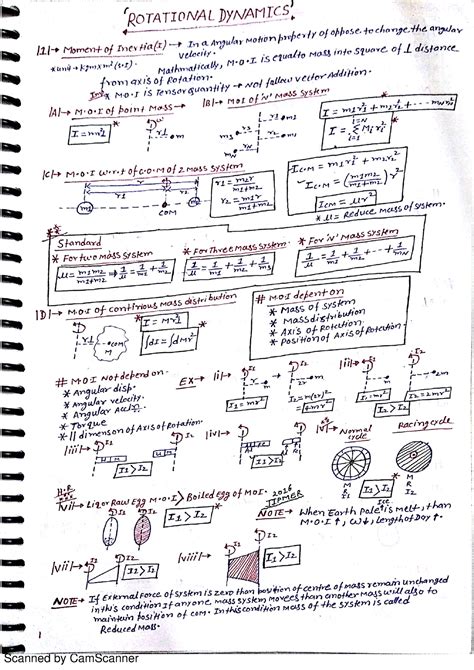 ROTATIONAL DYNAMICS
|2|→ Moment of Inertia(I) → In a Angular Motion property of oppose to change the angular
velocity.
*unit→ kgmxm²(S.I).
Mathmatically, M.O.I is equal to Mass into square of ⊥ distance
from axis of Rotation.
* M.O.I is Tensor quantity → Not follow vector Addition.
|A|→ M.O.I of point Mass →
|B|→ MOI of 'N' Mass System
I = mr²⊥
m1
m2
m3
mN
I = m1r1² + m2r2² + ----- mNrN²
I = Σ Mi ri²
|C|→ M.O.I w.r.t C.O.M of 2 Mass system
m1
COM
m2
r1 = m2r/m1+m2
r2 = m1r/m1+m2
ICM = m1r1² + m2r2²
ICM = (m1m2/m1+m2) r²
ICM = μr²
* μ = Reduce Mass of system.
Standard
* For two Mass System
μ = m1m2/m1+m2 ⇒ 1/μ = 1/m1 + 1/m2
* For Three Mass System
1/μ = 1/m1 + 1/m2 + 1/m3
* For 'N' Mass System
1/μ = 1/m1 + 1/m2 + ... + 1/mN
|D|→ M.O.I of continious Mass distribution
I = Mr²⊥
∫dI = ∫dMr²
# MOI depent on
* Mass of System
* Mass distribution
* Axis of Rotection
* Position of Axis of Rotection.
# M.O.I Not depend on
* Angular disp.
* Angular velocity.
* Angular Accⁿ
* Torque
* || dimension of Axis of Rotation.
EX →
|i|→
I1 = mr²
|ii|→
I2 = 4mr²
|iii|→
I1 = mr²
I2 = 2mr²
I1 > I2
|iv|→
I1 > I2
|v|→ Normal cycle
Racing cycle
|vi|→ Liq or Raw Egg M.O.I > Boiled egg of MOI.
2016
JIPMER
I1 > I2
NOTE → When Earth Pole is melt, than
M.O.I ↑, ω↓, length of Day ↑.
|vii|→
I1 > I2
|viii|→
I1 > I2
NOTE → If External Force of system is zero than position of centre of mass remain unchanged
in this condition If anyone mass system movees than another Mass will also to
maintain position of com. In this condition mass of the system is called
Reduced Mass.
1
Scanned by CamScanner